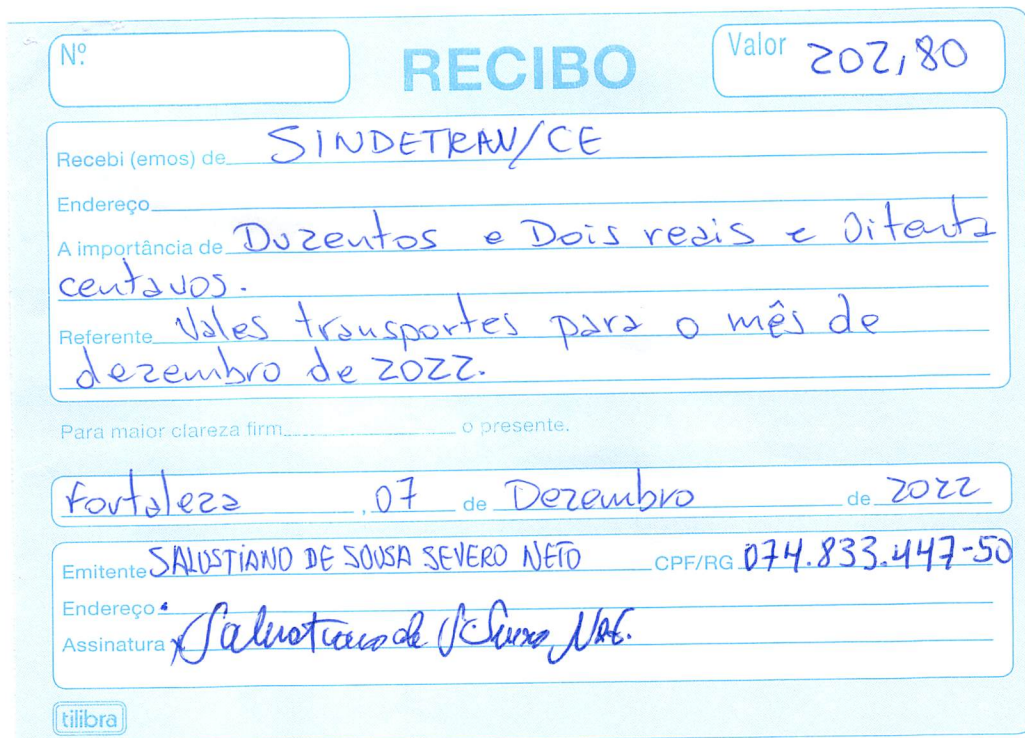 Nº
RECIBO
Valor 202,80
Recebi (emos) de SINDETRAN/CE
Endereço
A importância de Duzentos e Dois reais e Oitenta
centavos.
Referente Vales transportes para o mês de
dezembro de 2022.
Para maior clareza firm o presente.
Fortaleza, 07 de Dezembro de 2022
Emitente SALUSTIANO DE SOUSA SEVERO NETO CPF/RG 074.833.447-50
Endereço
Assinatura x Salustiano de
tilibra